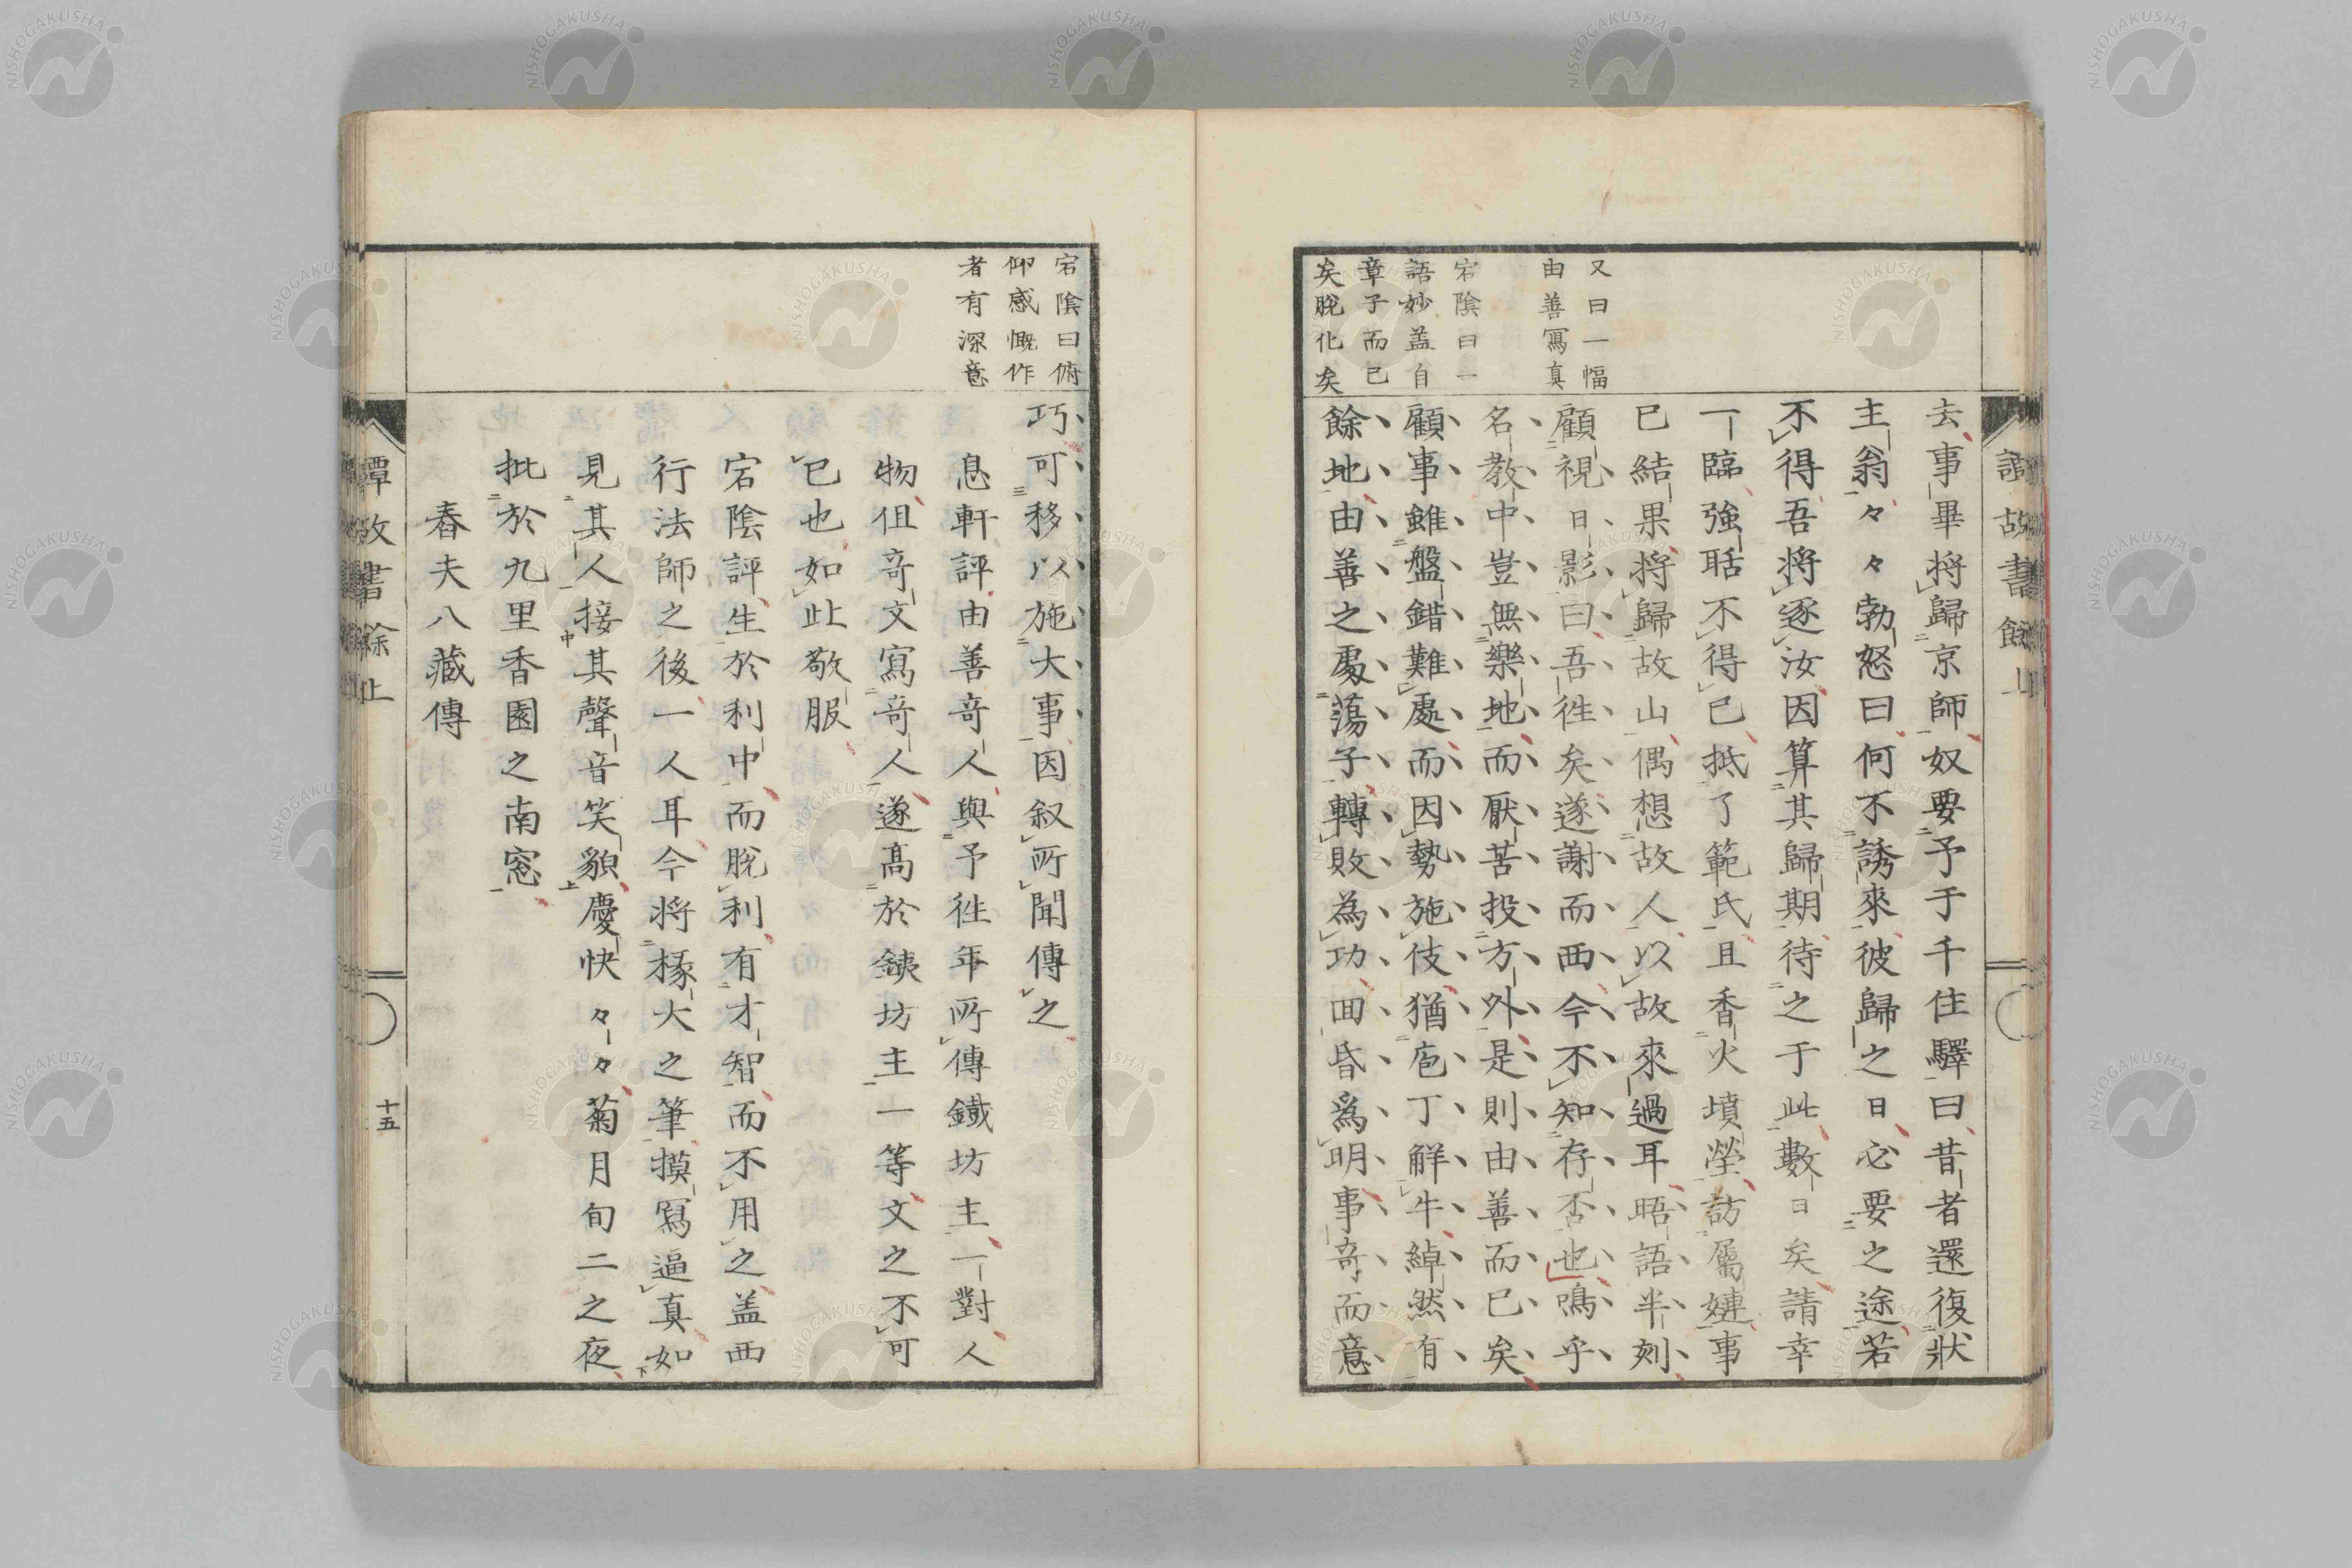 又曰一幅
由善寫真
宕陰曰一
語妙盖自
章子而已
矣脫化矣
去事畢將歸京師奴要予于千住驛曰昔者還復狀
主翁々々勃怒曰何不誘來彼歸之日必要之途若
不得吾將逐汝因算其歸期待之于此數日矣請幸
一臨強聒不得已抵了範氏且香火墳塋訪屬婕事
已結果將歸故山偶想故人以故來過耳晤語半刻
顧視日影曰吾徃矣遂謝而西今不知存否也嗚乎
名教中豈無樂地而厭苦投方外是則由善而已矣
顧事雖盤錯難處而因勢施伎猶庖丁解牛綽然有
餘地由善之處蕩子轉敗為功回昏為明事竒而意
宕陰曰俯
仰感慨作
者有深意
巧可移以施大事因叙所聞傳之
息軒評由善竒人與予徃年所傳鐵坊主一對人
物但竒文寫竒人遂髙於銕坊主一等文之不可
已也如此敬服
宕陰評生於利中而脫利有才智而不用之盖西
行法師之後一人耳今將椽大之筆摸寫逼真如
見其人接其聲音笑貌慶快々々菊月旬二之夜
批於九里香園之南窓
春夫八藏傳
譚故書餘上
十五